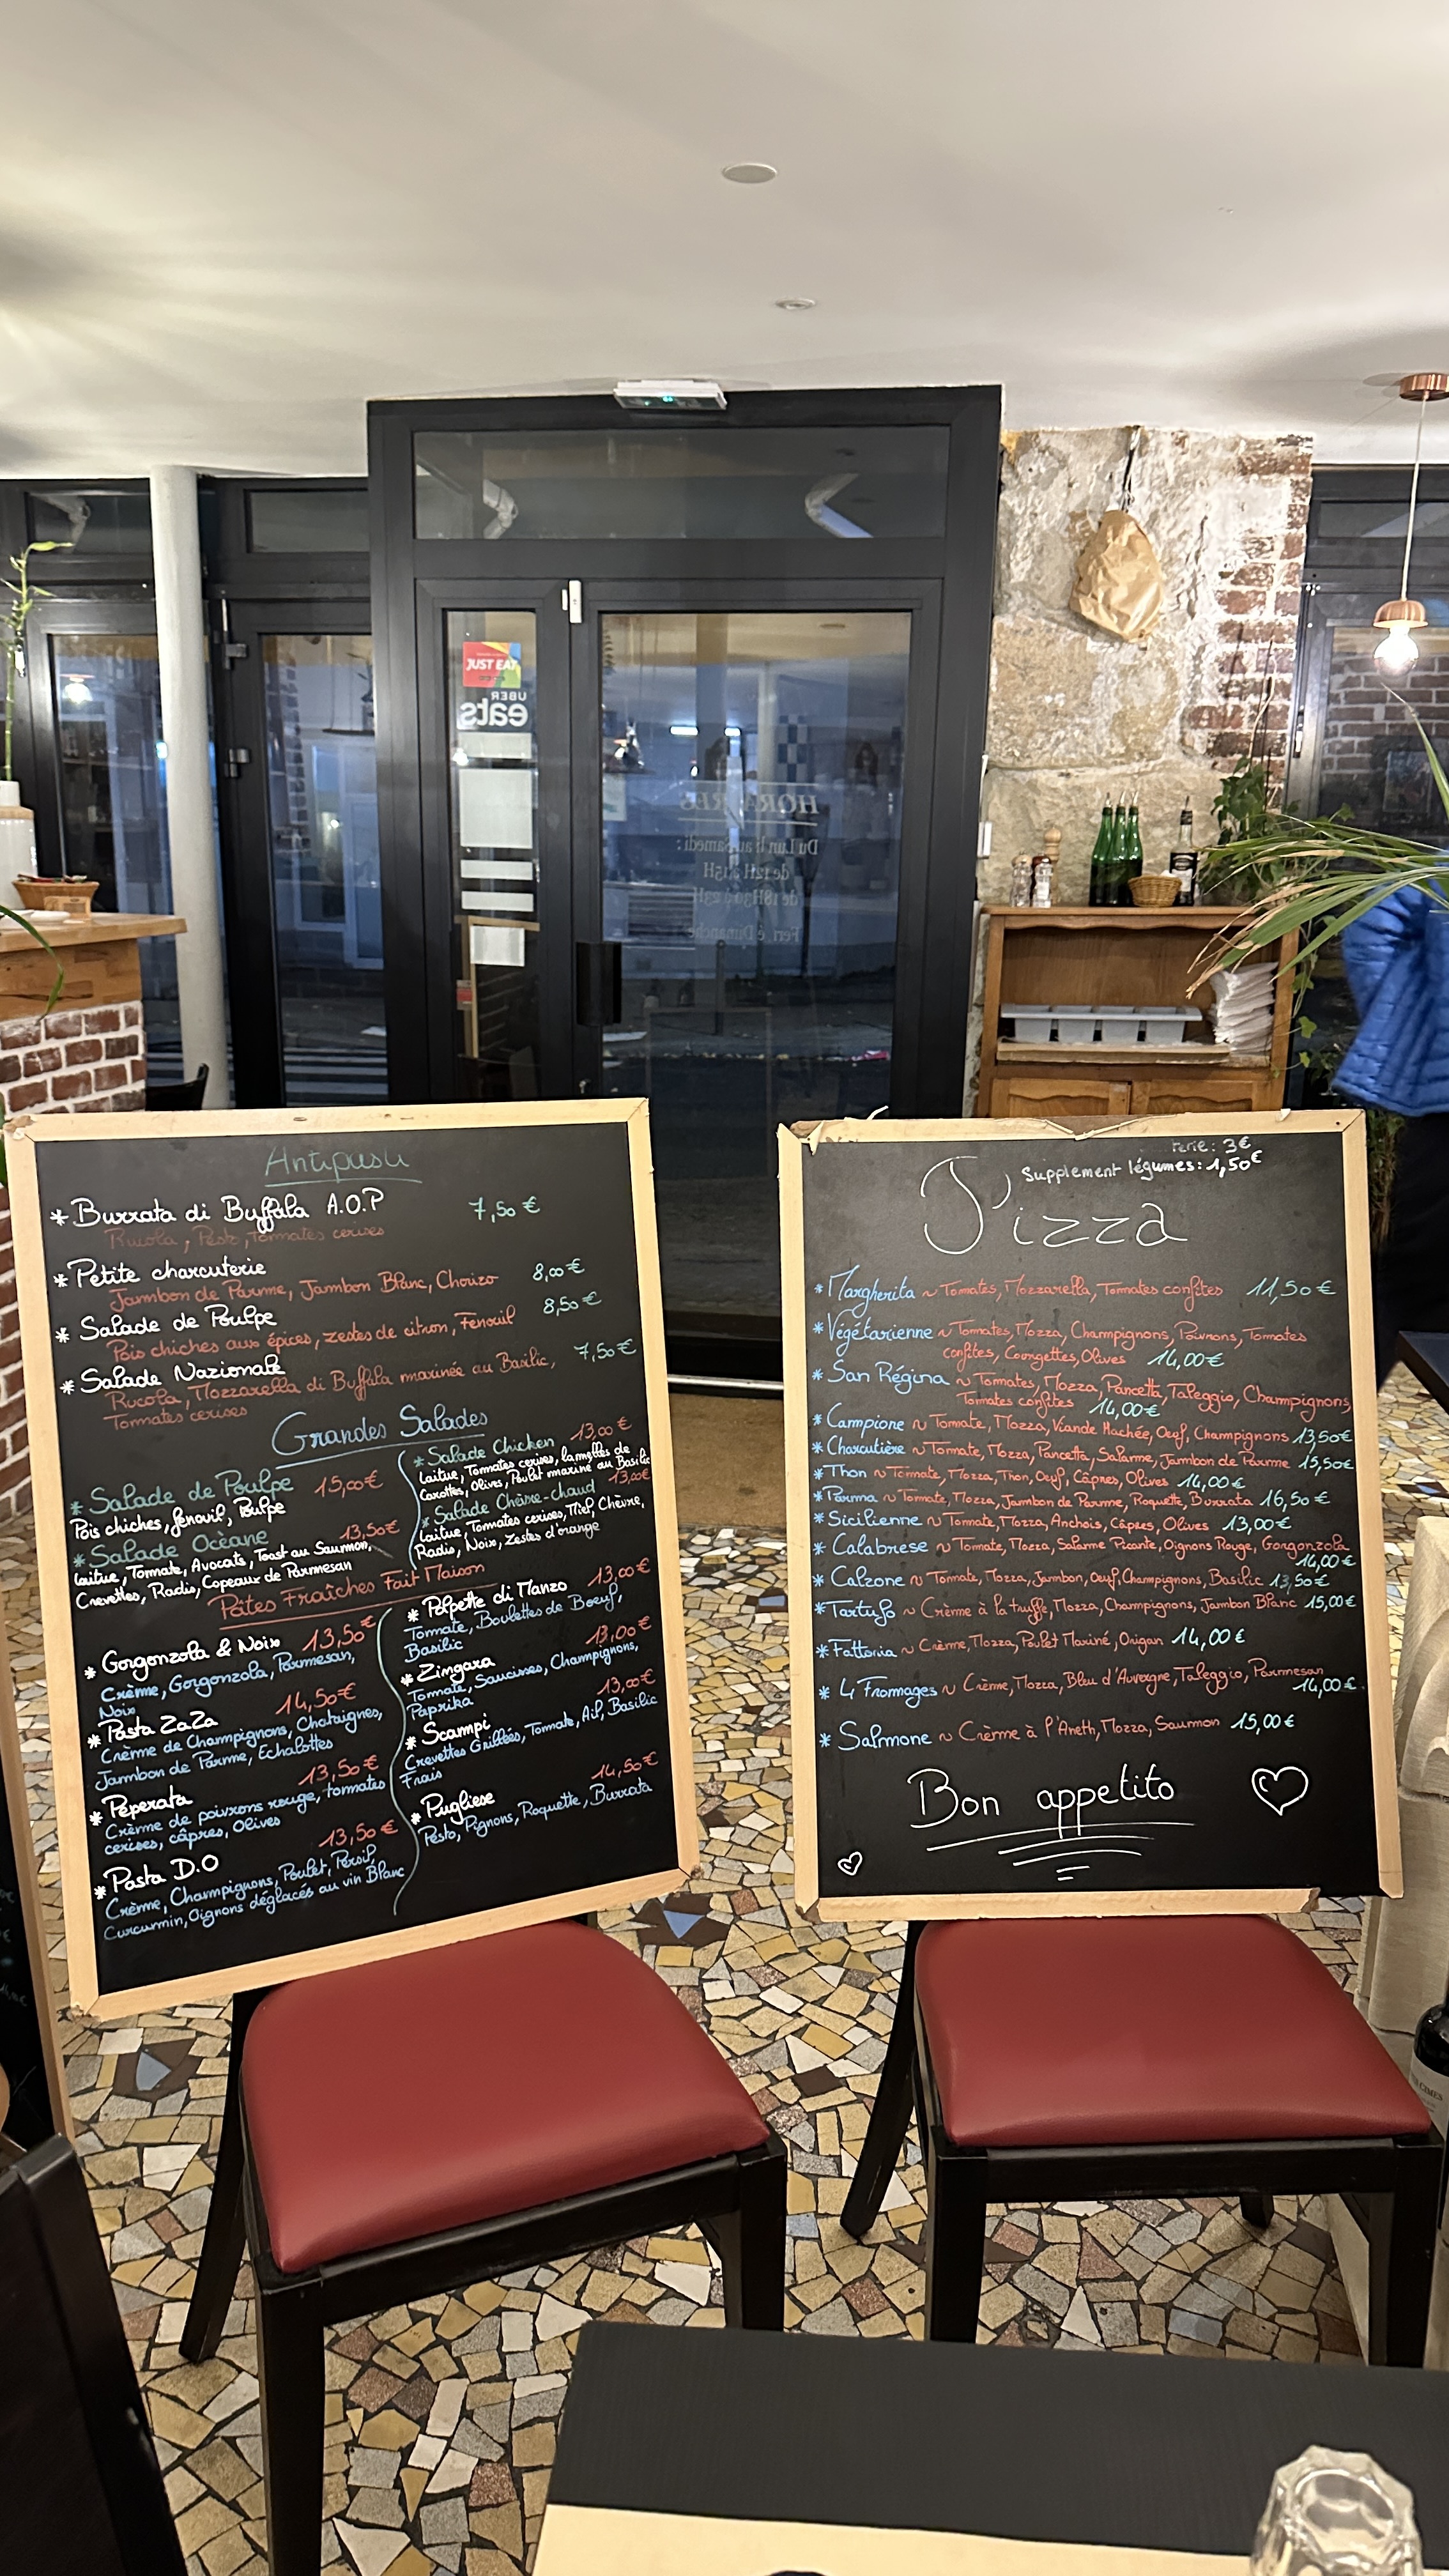 JUST EAT
UBER
eats
HORAIRES
Du Lundi au Samedi :
de 12H à 15H
de 18H30 à 23H
Fermé Dimanche
Antipasti
* Burrata di Buffala A.O.P 7,50 €
Rucola, Pesto, Tomates cerises
* Petite charcuterie 8,00 €
Jambon de Parme, Jambon Blanc, Chorizo
* Salade de Poulpe 8,50 €
Pois chiches aux épices, zestes de citron, Fenouil
* Salade Nazionale 7,50 €
Rucola, Mozzarella di Buffala marinée au Basilic,
Tomates cerises
Grandes Salades
* Salade de Poulpe 15,00 €
Pois chiches, fenouil, Poulpe
* Salade Océane 13,50 €
laitue, Tomate, Avocats, Toast au Saumon,
Crevettes, Radis, Copeaux de Parmesan
* Salade Chicken 13,00 €
laitue, Tomates cerises, lamelles de
Carottes, Olives, Poulet mariné au Basilic
* Salade Chèvre-chaud 13,00 €
laitue, Tomates cerises, Miel, Chèvre,
Radis, Noix, Zestes d'orange
Pâtes Fraîches Fait Maison
* Gorgonzola & Noix 13,50 €
Crème, Gorgonzola, Parmesan,
Noix
* Pasta ZaZa 14,50 €
Crème de Champignons, Chataignes,
Jambon de Parme, Echalottes
* Peperata 13,50 €
Crème de poivrons rouge, tomates
cerises, câpres, Olives
* Pasta D.O 13,50 €
Crème, Champignons, Poulet, Persil,
Curcumin, Oignons déglacés au vin Blanc
* Polpette di Manzo 13,00 €
Tomate, Boulettes de Boeuf,
Basilic
* Zingara 13,00 €
Tomate, Saucisses, Champignons,
Paprika
* Scampi 13,00 €
Crevettes Grillées, Tomate, Ail, Basilic
Frais
* Pugliese 14,50 €
Pesto, Pignons, Roquette, Burrata
3 €
Supplement légumes : 1,50 €
Pizza
* Margherita ~ Tomates, Mozzarella, Tomates confites 11,50 €
* Végétarienne ~ Tomates, Mozza, Champignons, Poivrons, Tomates
confites, Courgettes, Olives 14,00 €
* San Régina ~ Tomates, Mozza, Pancetta, Taleggio, Champignons,
Tomates confites 14,00 €
* Campione ~ Tomate, Mozza, Viande Hachée, Oeuf, Champignons 13,50 €
* Charcutière ~ Tomate, Mozza, Pancetta, Salarme, Jambon de Parme 15,50 €
* Thon ~ Tomate, Mozza, Thon, Oeuf, Câpres, Olives 14,00 €
* Parma ~ Tomate, Mozza, Jambon de Parme, Roquette, Burrata 16,50 €
* Sicilienne ~ Tomate, Mozza, Anchois, Câpres, Olives 13,00 €
* Calabrese ~ Tomate, Mozza, Salarme Picante, Oignons Rouge, Gorgonzola
14,00 €
* Calzone ~ Tomate, Mozza, Jambon, Oeuf, Champignons, Basilic 13,50 €
* Tartufo ~ Crème à la truffe, Mozza, Champignons, Jambon Blanc 15,00 €
* Fattoria ~ Crème, Mozza, Poulet Mariné, Origan 14,00 €
* 4 Fromages ~ Crème, Mozza, Bleu d'Auvergne, Taleggio, Parmesan
14,00 €
* Salmone ~ Crème à l'Aneth, Mozza, Saumon 15,00 €
Bon appetito